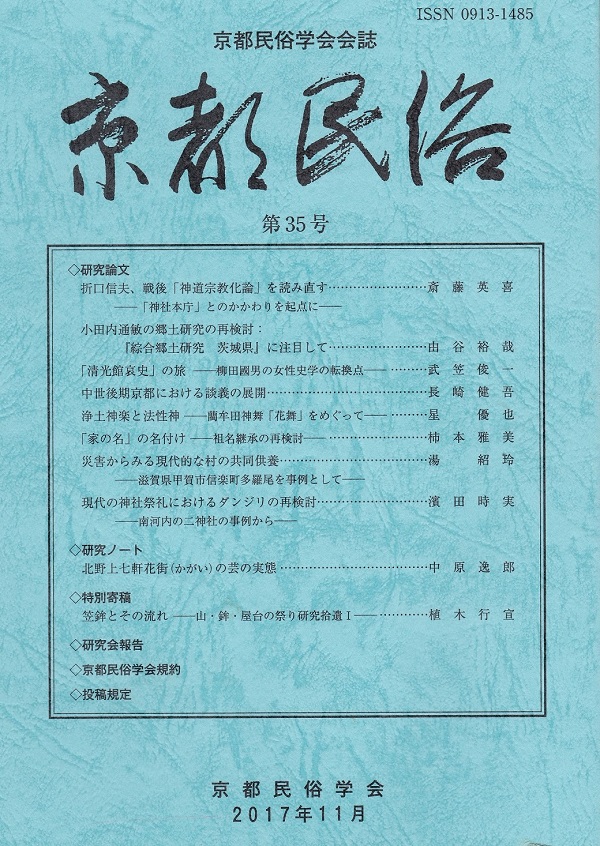 ISSN 0913-1485
京都民俗学会会誌
京都民俗
第35号
◇研究論文
折口信夫、戦後「神道宗教化論」を読み直す……………………斎藤英喜
――「神社本庁」とのかかわりを起点に――
小田内通敏の郷土研究の再検討：
『綜合郷土研究　茨城県』に注目して……………………由谷裕哉
「清光館哀史」の旅 ――柳田國男の女性史学の転換点――…………武笠俊一
中世後期京都における談義の展開……………………長崎健吾
浄土神楽と法性神 ――藺牟田神舞「花舞」をめぐって――…………星　優也
「家の名」の名付け ――祖名継承の再検討――……………………柿本雅美
災害からみる現代的な村の共同供養……………………湯　紹玲
――滋賀県甲賀市信楽町多羅尾を事例として――
現代の神社祭礼におけるダンジリの再検討……………………濱田時実
――南河内の二神社の事例から――
◇研究ノート
北野上七軒花街(かがい)の芸の実態……………………中原逸郎
◇特別寄稿
笠鉾とその流れ ――山・鉾・屋台の祭り研究拾遺Ⅰ――…………植木行宣
◇研究会報告
◇京都民俗学会規約
◇投稿規定
京都民俗学会
2017年11月